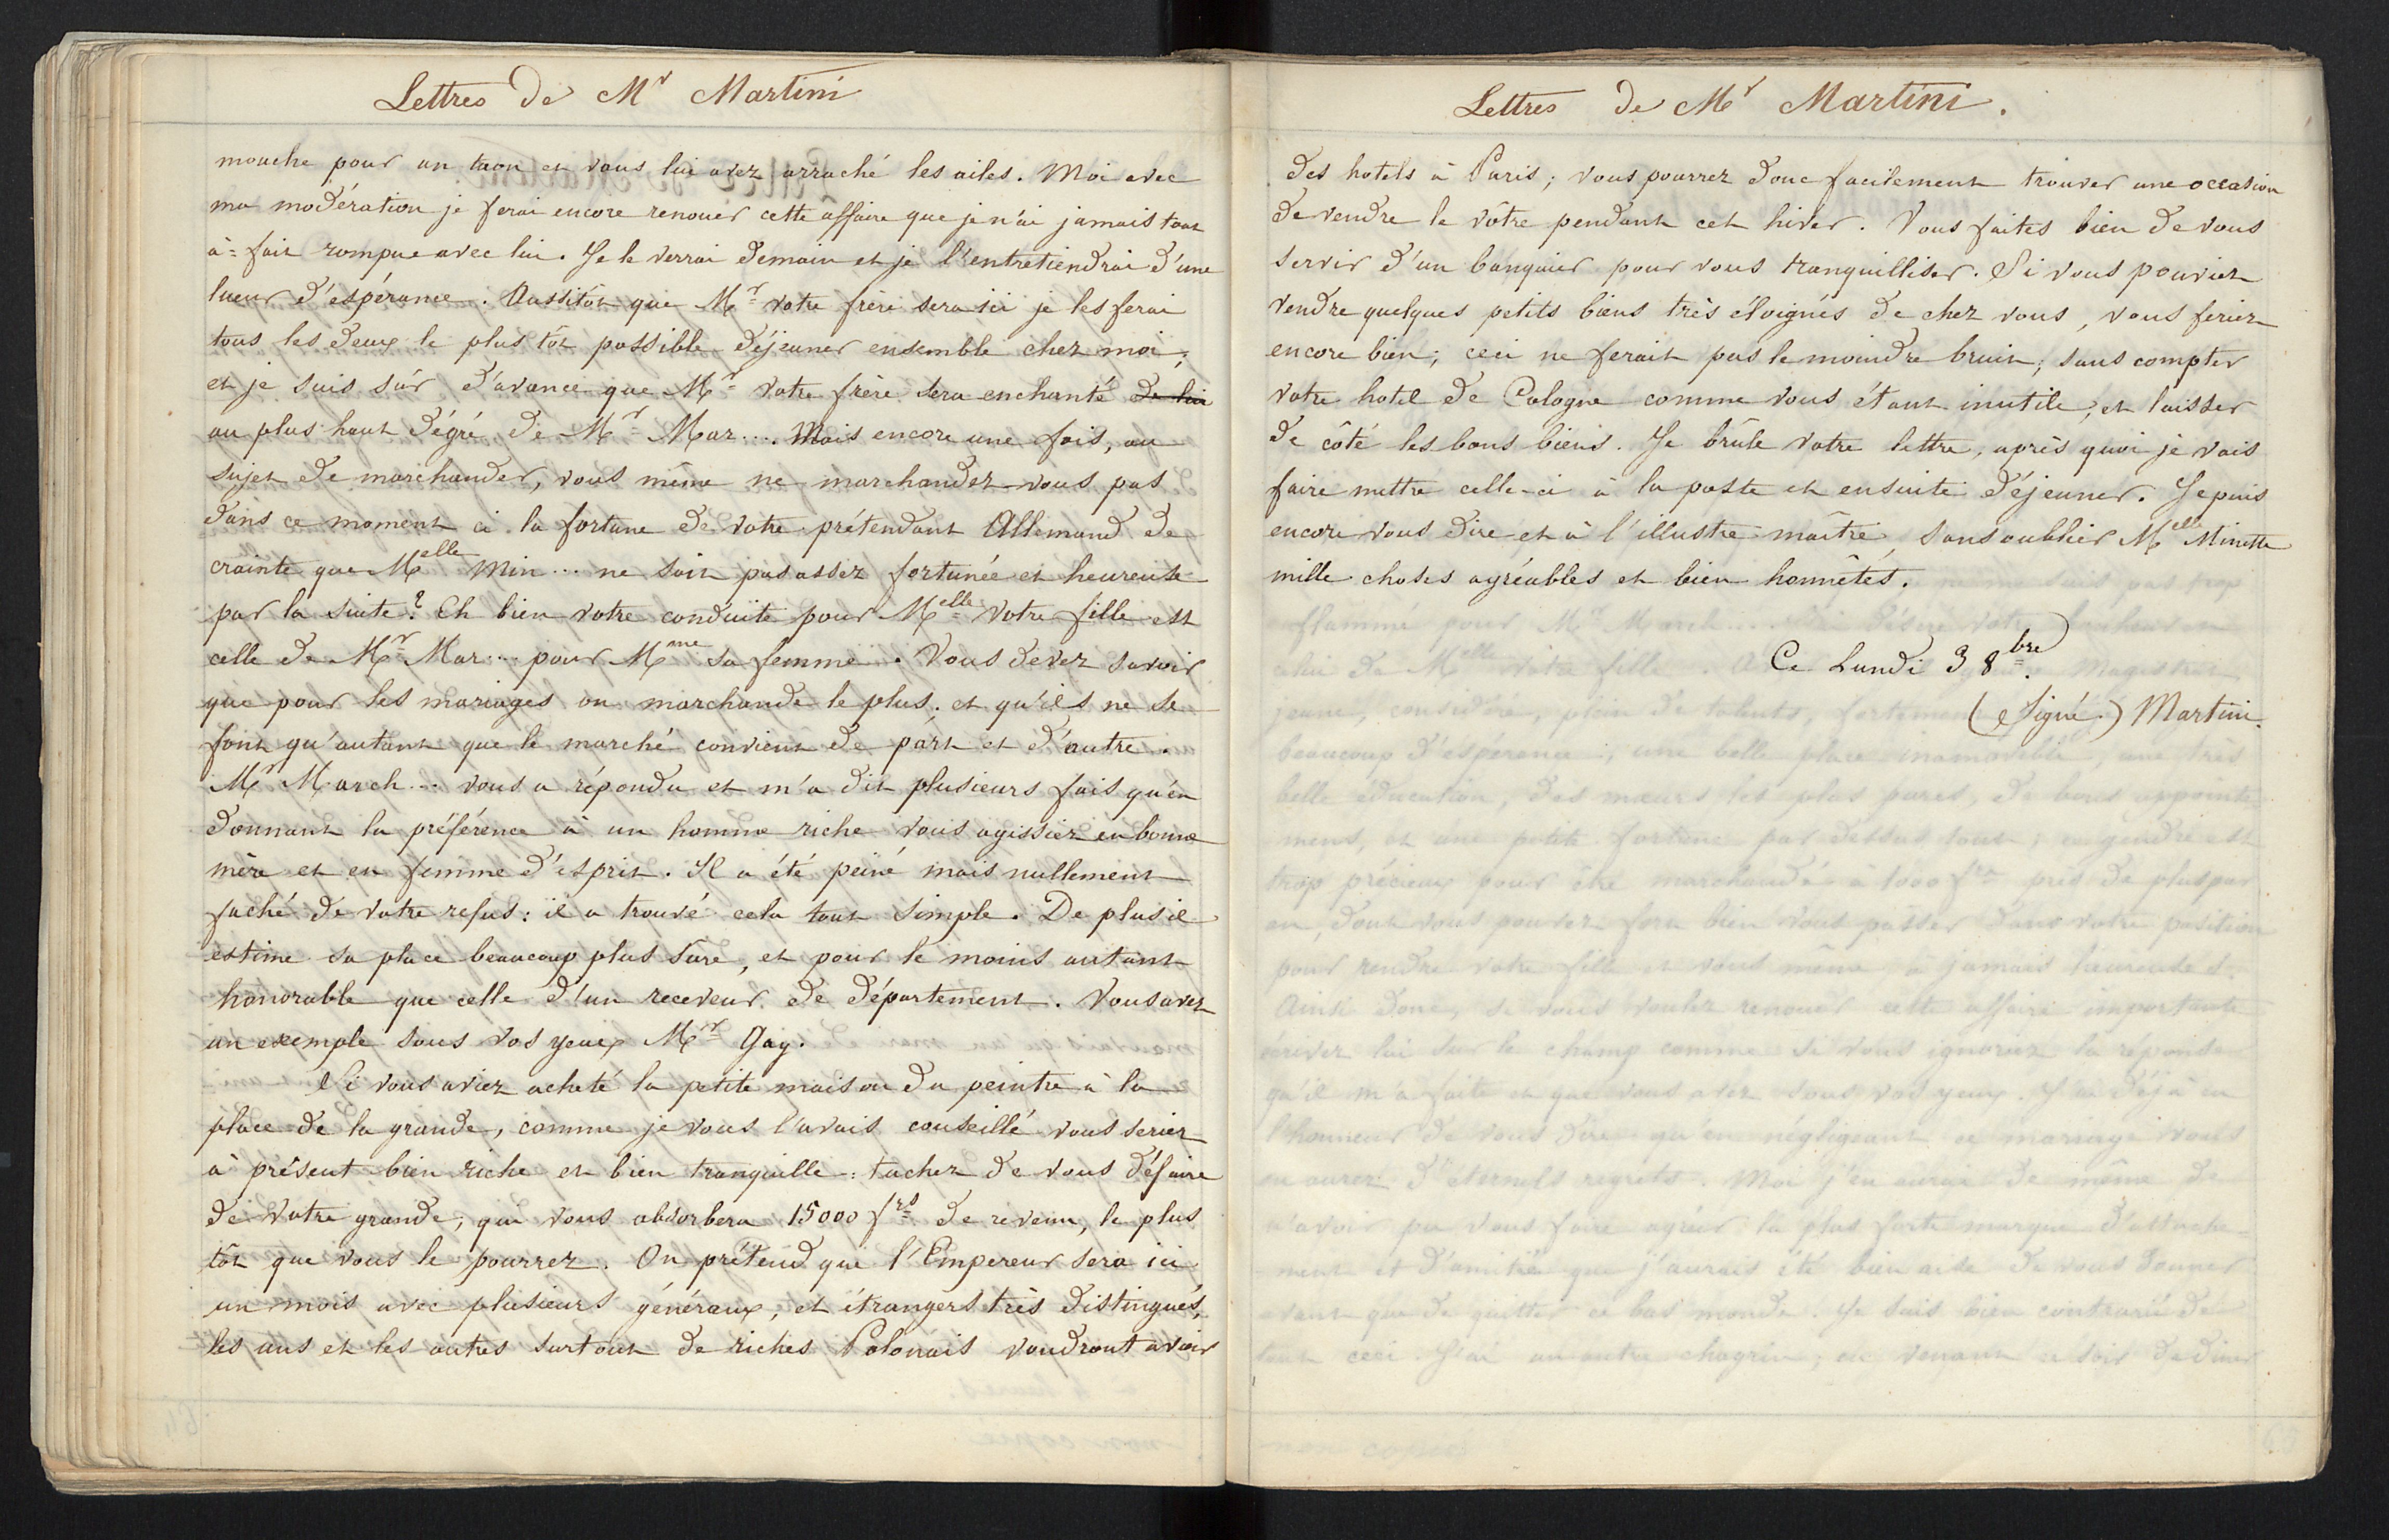 Lettres de Mr Martini
mouche pour un taon et vous lui avez arraché les ailes. Moi avec
ma modération je ferai encore renouer cette affaire que je n'ai jamais tout
à=fait rompue avec lui. Je le verrai demain et je l'entretiendrai d'une
lueur d'espérance. Aussitôt que Mr votre frère sera ici je les ferai
tous les deux le plus tôt possible déjeuner ensemble chez moi,
et je suis sûr d'avance que Mr votre frère sera enchanté de lui
au plus haut dégré de Mr Mar.... Mais encore une fois, au
sujet de marchander, vous même ne marchandez-vous pas
dans ce moment ci la fortune de votre prétendant Allemand de
crainte que Melle Min... ne soit pas assez fortunée et heureuse
par la suite? Eh bien votre conduite pour Melle votre fille est
celle de Mr Mar... pour Mme sa femme. Vous devez savoir
que pour les mariages on marchande le plus. et qu'ils ne se
font qu'autant que le marché convient de part et d'autre.
Mr March... vous a répondu et m'a dit plusieurs fois qu'en
donnant la préférence à un homme riche vous agissiez en bonne
mère et en femme d'esprit. Il a été peiné mais nullement
faché de votre refus: il a trouvé cela tout simple. De plus il
estime sa place beaucoup plus sûre, et pour le moins autant
honorable que celle d'un receveur de département. Vous avez
un exemple sous vos yeux Mr Gay.
Si vous aviez acheté la petite maison du peintre à la
place de la grande, comme je vous l'avais conseillé vous seriez
à présent bien riche et bien tranquille: tachez de vous défaire
de votre grande, qui vous absorbera 15000 frs de revenu, le plus
tôt que vous le pourrez. On prétend que l'Empereur sera ici
un mois avec plusieurs généraux, et étrangers très distingués,
les uns et les autres surtout de riches Polonais voudront avoir
Lettres de Mr Martini.
des hotels à Paris; vous pourrez donc facilement trouver une occasion
de vendre le vôtre pendant cet hiver. Vous faites bien de vous
servir d'un banquier pour vous tranquilliser. Si vous pouviez
vendre quelques petits biens très éloignés de chez vous, vous feriez
encore bien; ceci ne ferait pas le moindre bruit, sans compter
votre hotel de Cologne comme vous étant inutile, et laisser
de côté les bons biens. Je brûle votre lettre, après quoi je vais
faire mettre celle-ci à la poste et ensuite déjeuner. Je puis
encore vous dire et à l'illustre maître, sans oublier Melle Minette
mille choses agréables et bien honnêtes.
Ce Lundi 3 8bre.
(Signé.) Martini.